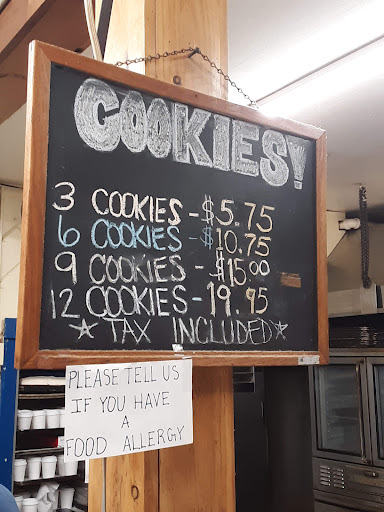 COOKIES!
3 COOKIES - $5.75
6 COOKIES - $10.75
9 COOKIES - $15.00
12 COOKIES - 19.95
★ TAX INCLUDED ★
PLEASE TELL US
IF YOU HAVE
A
FOOD ALLERGY